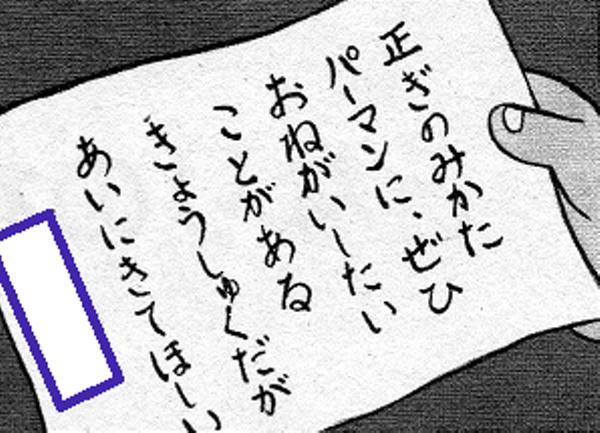 正ぎのみかた
パーマンに、ぜひ
おねがいしたい
ことがある
きょうしゅくだが
あいにきてほしい